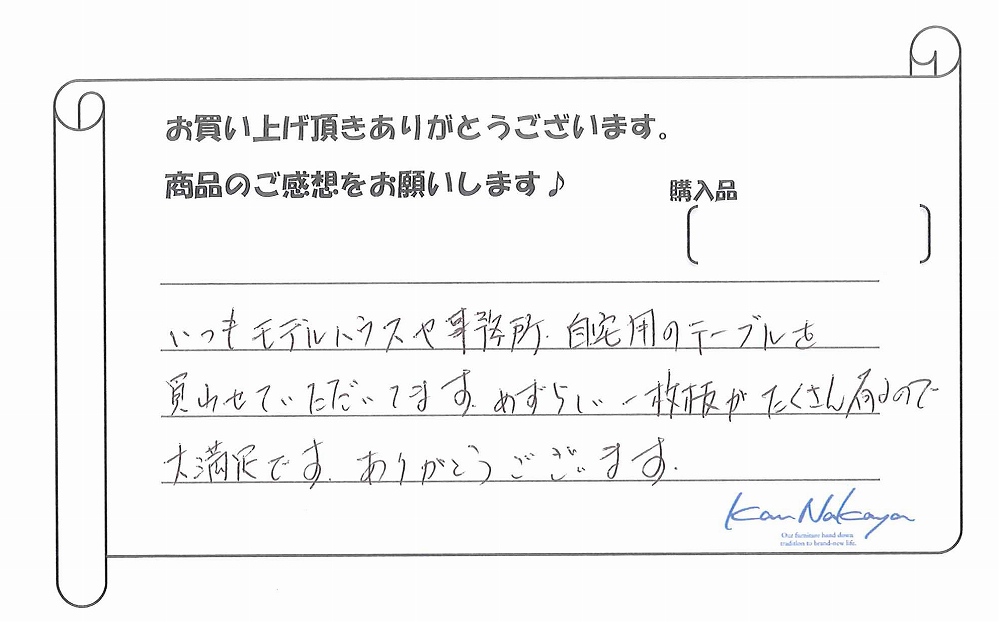 お買い上げ頂きありがとうございます。
商品のご感想をお願いします♪
購入品
いつもモデルハウスや事務所、自宅用のテーブルを
買わせていただいてます。めずらしい一枚板がたくさん有るので
大満足です。ありがとうございます。
Kan Nakaya
Our furniture hand down
tradition to brand-new life.